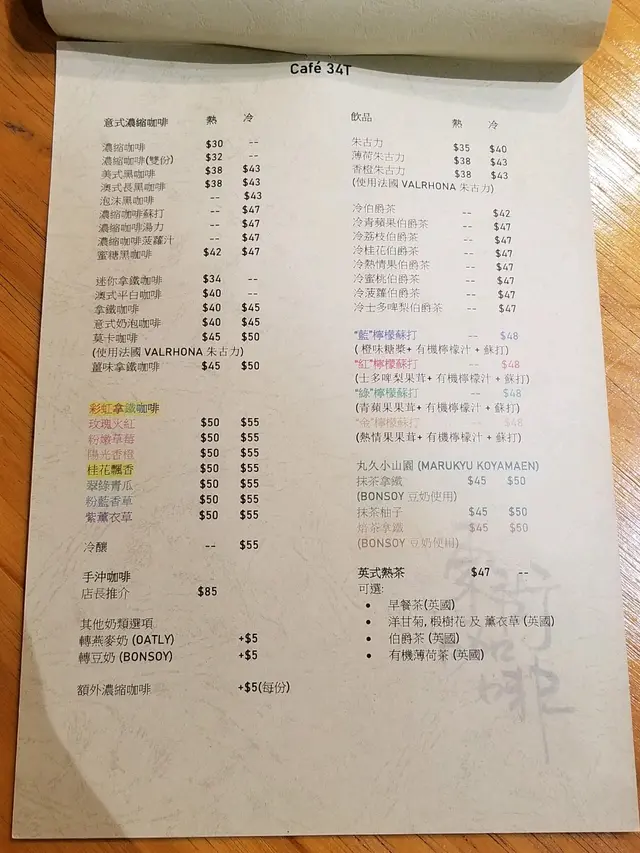 Café 34T
意式濃縮咖啡 熱 冷
濃縮咖啡 $30 --
濃縮咖啡(雙份) $32 --
美式黑咖啡 $38 $43
澳式長黑咖啡 $38 $43
泡沫黑咖啡 -- $43
濃縮咖啡蘇打 -- $47
濃縮咖啡湯力 -- $47
濃縮咖啡菠蘿汁 -- $47
蜜糖黑咖啡 $42 $47
迷你拿鐵咖啡 $34 --
澳式平白咖啡 $40 --
拿鐵咖啡 $40 $45
意式奶泡咖啡 $40 $45
莫卡咖啡 $45 $50
(使用法國 VALRHONA 朱古力)
薑味拿鐵咖啡 $45 $50
彩虹拿鐵咖啡
玫瑰火紅 $50 $55
粉嫩草莓 $50 $55
陽光香橙 $50 $55
桂花飄香 $50 $55
翠綠青瓜 $50 $55
粉藍香草 $50 $55
紫薰衣草 $50 $55
冷釀 -- $55
手沖咖啡
店長推介 $85
其他奶類選項
轉燕麥奶 (OATLY) +$5
轉豆奶 (BONSOY) +$5
額外濃縮咖啡 +$5(每份)
飲品
熱 冷
朱古力 $35 $40
薄荷朱古力 $38 $43
香橙朱古力 $38 $43
(使用法國 VALRHONA 朱古力)
冷伯爵茶 -- $42
冷青蘋果伯爵茶 -- $47
冷荔枝伯爵茶 -- $47
冷桂花伯爵茶 -- $47
冷熱情果伯爵茶 -- $47
冷蜜桃伯爵茶 -- $47
冷菠蘿伯爵茶 -- $47
冷士多啤梨伯爵茶 -- $47
"藍"檸檬蘇打 -- $48
( 橙味糖漿+ 有機檸檬汁 + 蘇打)
"紅"檸檬蘇打 -- $48
(士多啤梨果茸+ 有機檸檬汁 + 蘇打)
"綠"檸檬蘇打 -- $48
(青蘋果果茸+ 有機檸檬汁 + 蘇打)
"金"檸檬蘇打 -- $48
(熱情果果茸+ 有機檸檬汁 + 蘇打)
丸久小山園 (MARUKYU KOYAMAEN)
抹茶拿鐵 $45 $50
(BONSOY 豆奶使用)
抹茶柚子 $45 $50
焙茶拿鐵 $45 $50
(BONSOY 豆奶使用)
英式熱茶 $47 --
可選:
• 早餐茶(英國)
• 洋甘菊, 椴樹花 及 薰衣草 (英國)
• 伯爵茶 (英國)
• 有機薄荷茶 (英國)